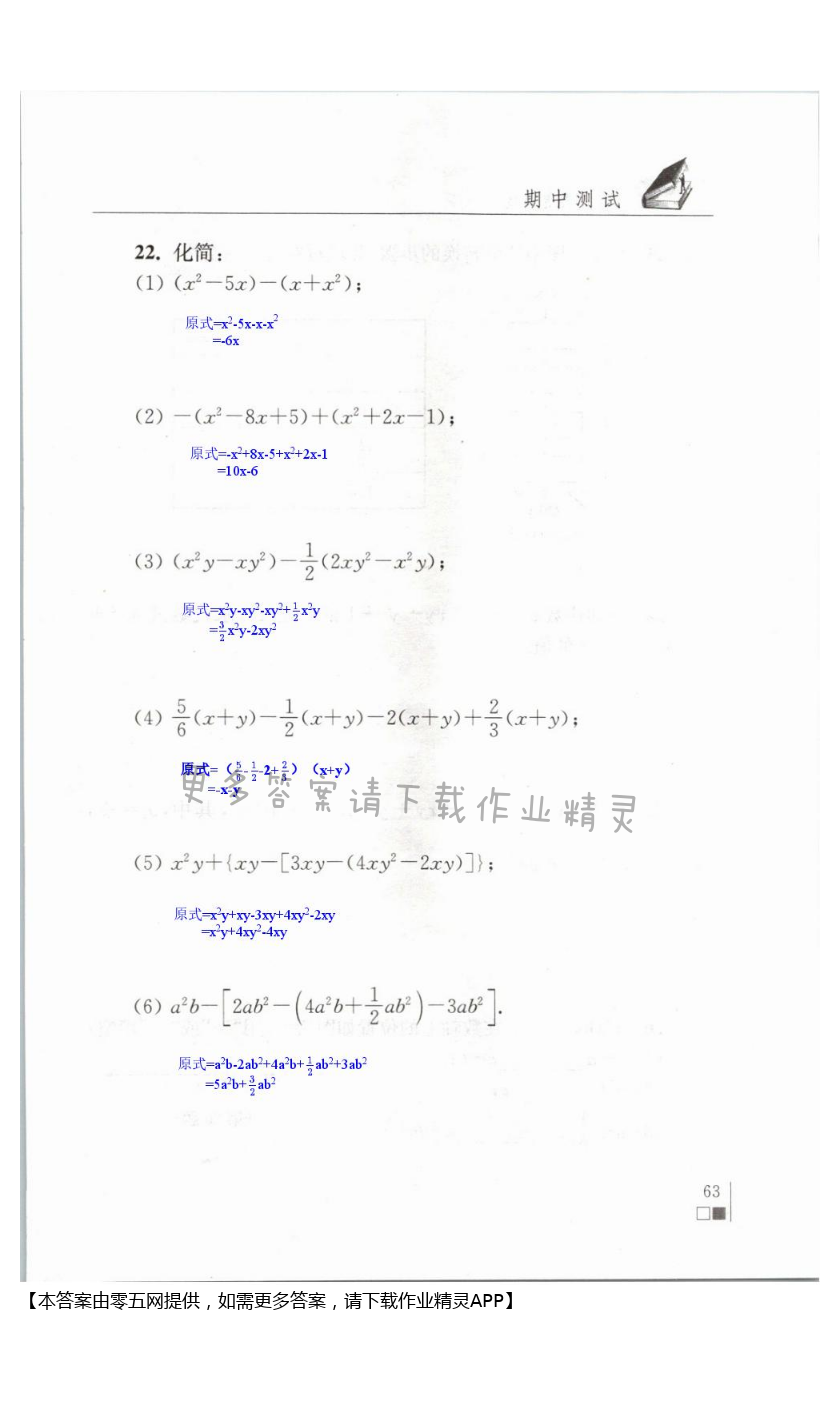 期中测试
22. 化简：
(1) (x²－5x)－(x＋x²)；
原式=x²-5x-x-x²
=-6x
(2) －(x²－8x＋5)＋(x²＋2x－1)；
原式=-x²+8x-5+x²+2x-1
=10x-6
(3) (x²y－xy²)－1/2(2xy²－x²y)；
原式=x²y-xy²-xy²+1/2x²y
=3/2x²y-2xy²
(4) 5/6(x＋y)－1/2(x＋y)－2(x＋y)＋2/3(x＋y)；
原式=（5/6-1/2-2+2/3）（x+y）
=-x-y
更多答案请下载作业精灵
(5) x²y＋{xy－[3xy－(4xy²－2xy)]}；
原式=x²y+xy-3xy+4xy²-2xy
=x²y+4xy²-4xy
(6) a²b－[2ab²－(4a²b＋1/2ab²)－3ab²].
原式=a²b-2ab²+4a²b+1/2ab²+3ab²
=5a²b+3/2ab²
63
【本答案由零五网提供，如需更多答案，请下载作业精灵APP】